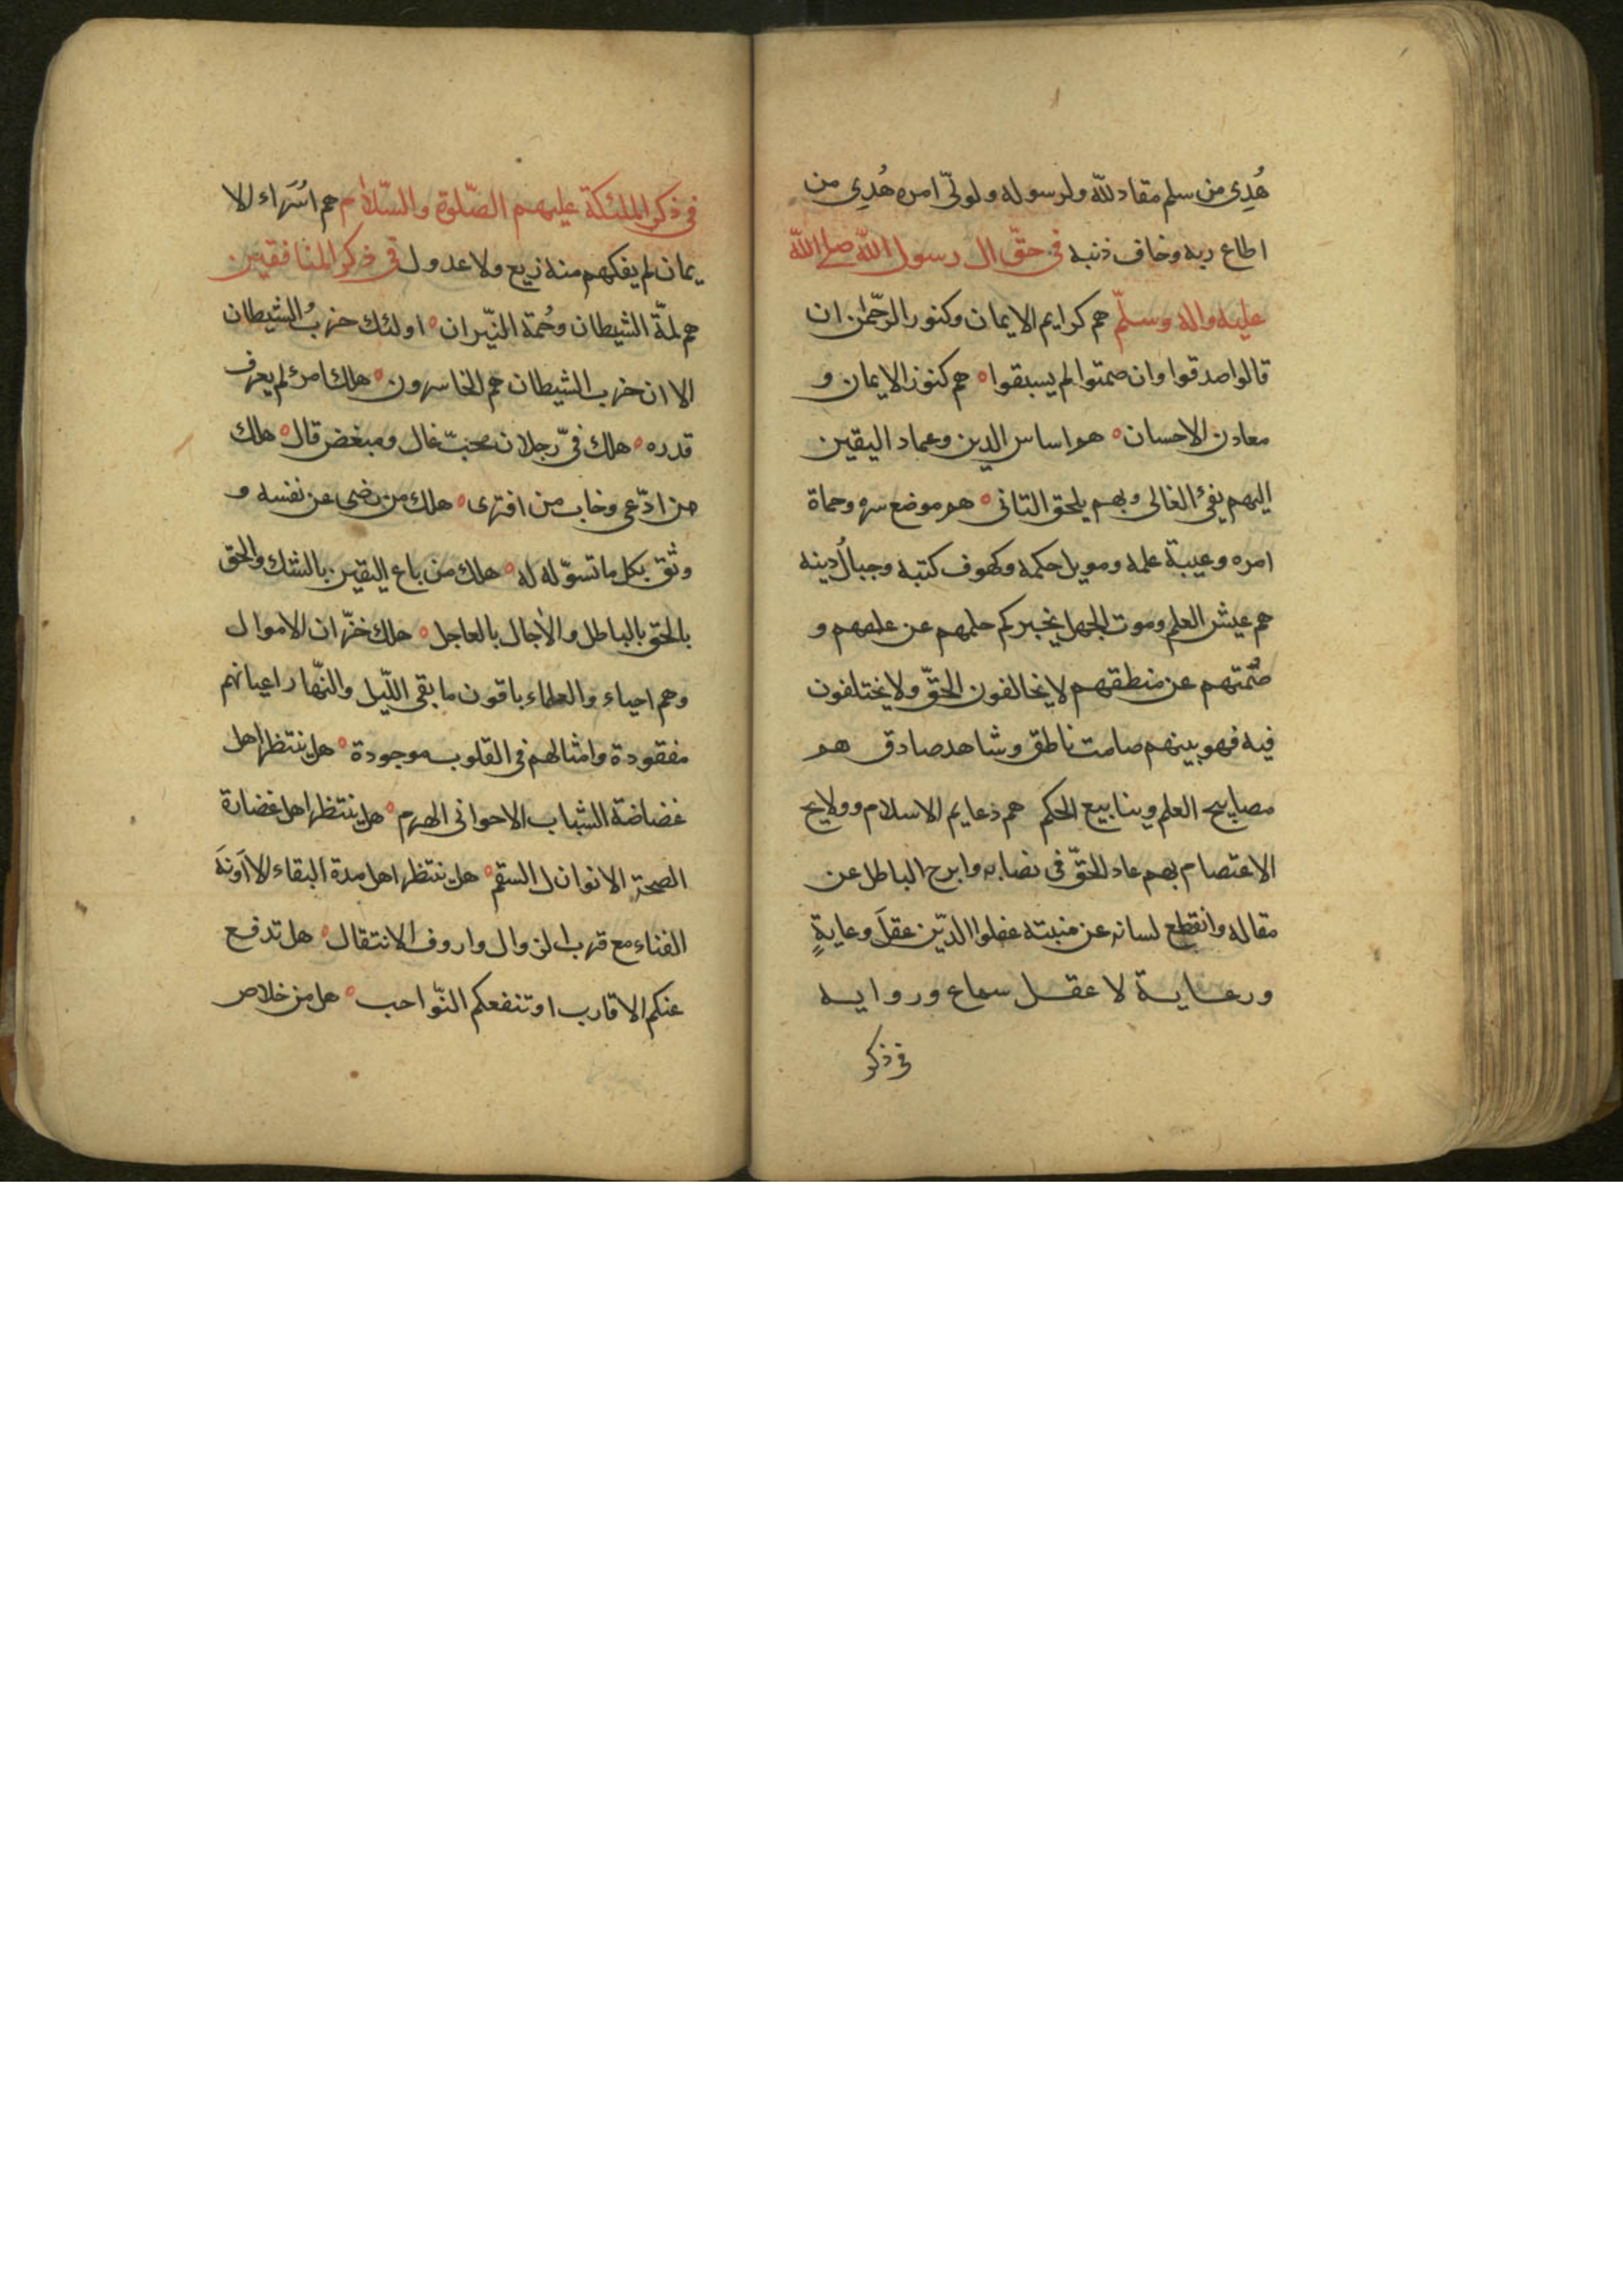 هُدِي من سلم مقاد لله ولرسوله ولوليّ امره هُدِي من
اطاع ربه وخاف ذنبه في حقّ ال رسول الله صلى الله
عليه واله وسلّم هم كرايم الايمان وكنوز الرحمٰن ان
قالوا صدقوا وان صمتوا لم يسبقوا ه هم كنوز الايمان و
معادن الاحسان ه هم اساس الدين وعماد اليقين
اليهم يفئ الغالى وبهم يلحق التانى ه هم موضع سره وحماة
امره وعيبة علمه ومويل حكمه وكهوف كتبه وجبالُ دينه
هم عيش العلم وموت الجهل يخبركم حلمهم عن علمهم و
صُمتهم عن منطقهم لا يخالفون الحقّ ولا يختلفون
فيه فهو بينهم صامت ناطق وشاهد صادق هم
مصابيح العلم وينابيع الحكم هم دعايم الاسلام وولايج
الاعتصام بهم عاد الحقّ فى نصابه وابرح الباطل عن
مقاله وانقطع لسانه عن منبته عقلوا الدّين عقلَ وعايةٍ
ورعاية لا عقل سماع وروايه
فى ذكر
فى ذكر الملئكة عليهم الصّلوة والسّلام هم اسَرَاء للا
يمان لم يفكهم منه زيع ولا عدول فى ذكر المنافقين
هم لمّة الشيطان وحُمة النيّران ه اولئك حزبُ الشيطان
الا ان حزب الشيطان هم الخاسرون ه هلك امرئ لم يعرف
قدره ه هلك فىّ رجلان محبّ غال ومبغض قال ه هلك
من ادّعى وخاب من افترى ه هلك من رضى عن نفسه و
وثق بكل ما تسوّله له ه هلك من باع اليقين بالشك والحق
بالحق بالباطل والأجال بالعاجل ه هلك خزّان الاموال
وهم احياء والعلماء باقون ما بقى اللّيل والنّهار اعيانهم
مفقودة وامثالهم فى القلوب موجودة ه هل ينتظر اهل
غضاضة الشباب الا حوانى الهرم ه هل ينتظر اهل غضارة
الصحة الا نوازل السقم ه هل ينتظر اهل مدة البقاء الا آونَةَ
الفناء مع قرب الزوال واروف الانتقال ه هل تدفع
عنكم الاقارب او تنفعكم النّواحب ه هل من خلاص